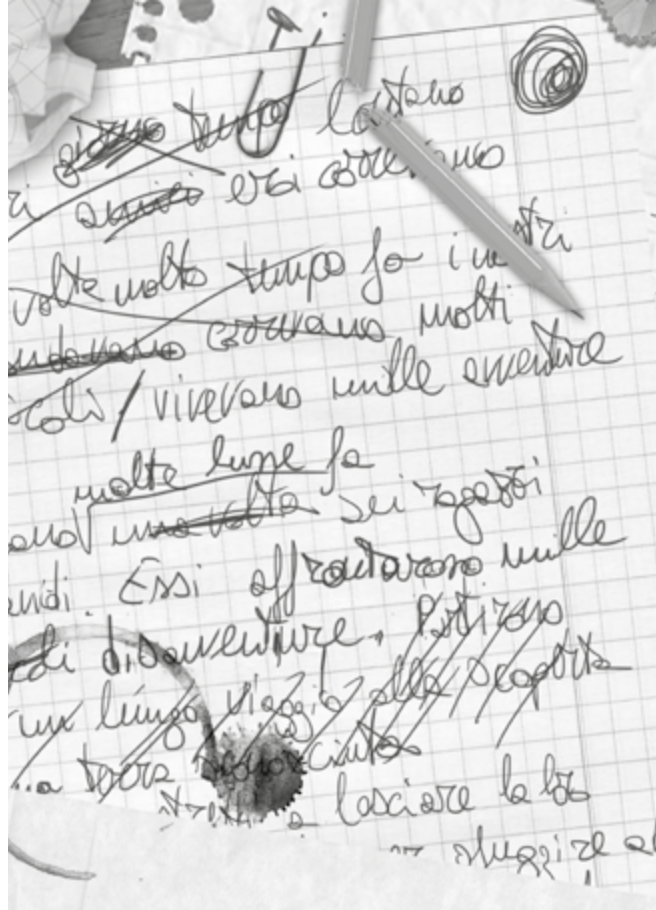 giorno tempo lontano
amici eroi correvano
volte molto tempo fa i nostri
andavano correvano molti
vivevano mille avventure
molte lune fa
una volta sei ragazzi
Essi affrontarono mille
di disavventure. Partirono
un lungo viaggio alla scoperta
terra sconosciuta
a lasciare la loro
sfuggire